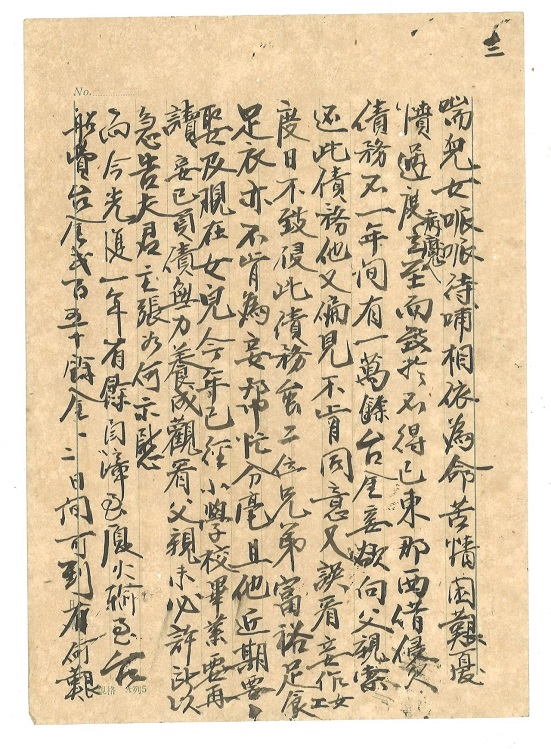 三
No.
喘兒女哌哌待哺相依為命苦情困艱憂
憤過度病魔至而致於不得已東那西借侵欠
債務不一年間有一萬餘台金妾欲向父親索
还此債務他又偏見不肯同意又誤看妾作女工
度日不致侵此債務么二位兄弟富裕足食
足衣亦不肯為妾帮忙分毫且他近期要
娶及現在女兒今年已徑小學校畢業要再
讀妾已負債無力養成觀看父親未必許此以
急告夫君主張如何示慰
而今光復一年省縣自漳至厦火輪至台
船費台金弍百五十餘金一二日间可到有何艱